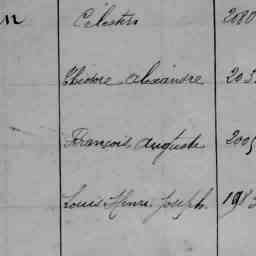 Célestin 2080
Théodore Alexandre 203
François Auguste 2005
Louis Henri Joseph 198